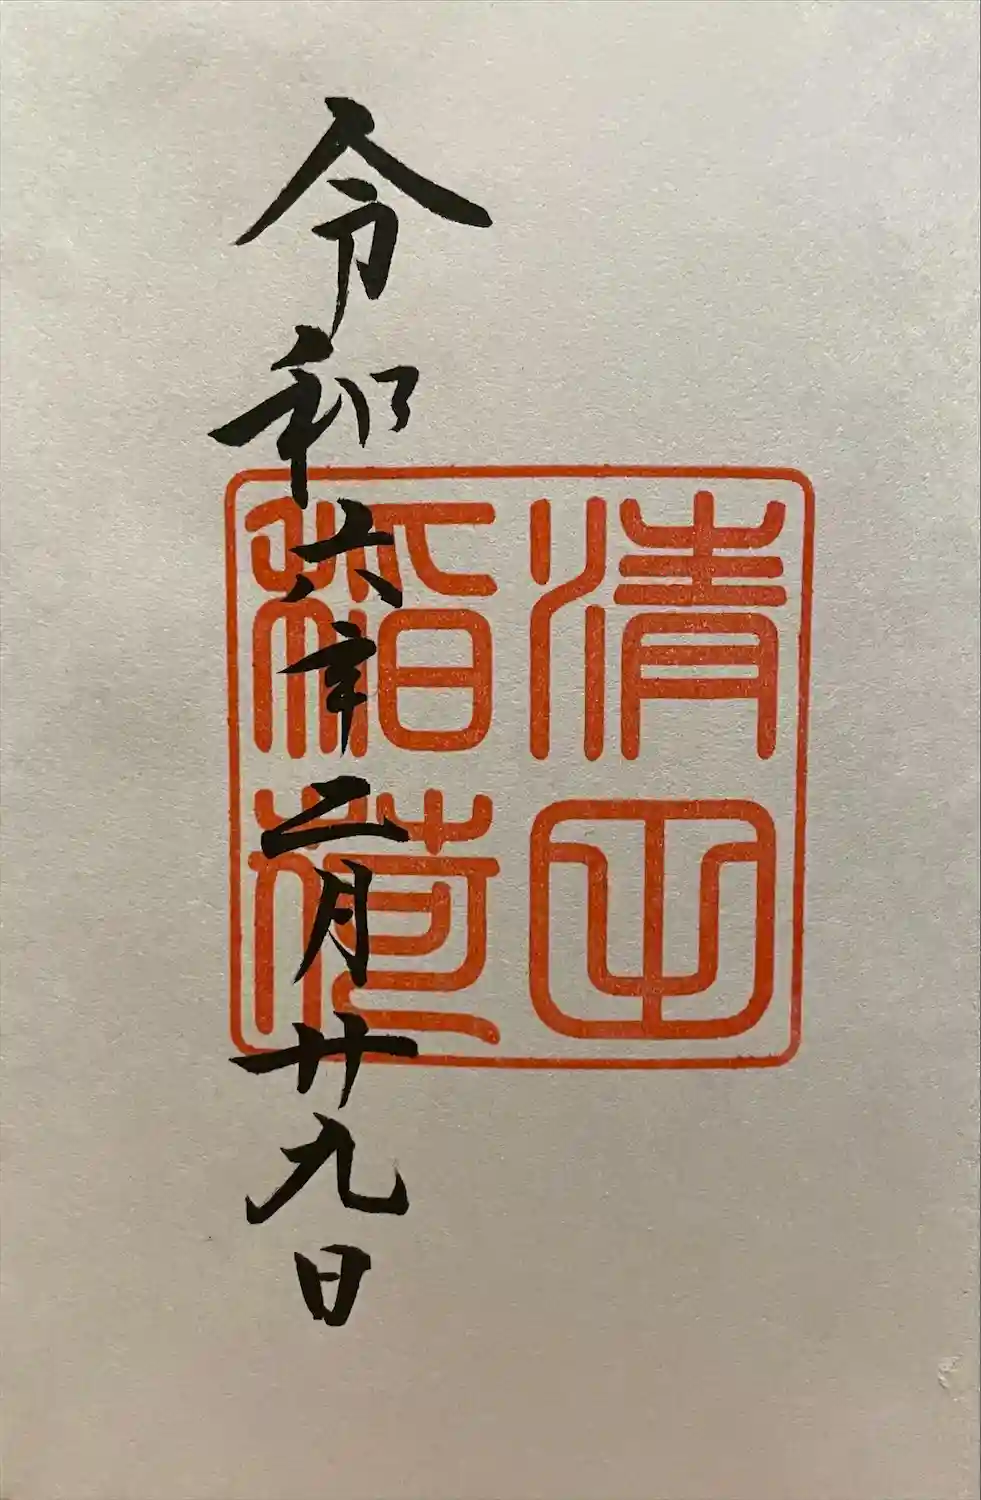 清田
稲荷
令和六年二月廿九日